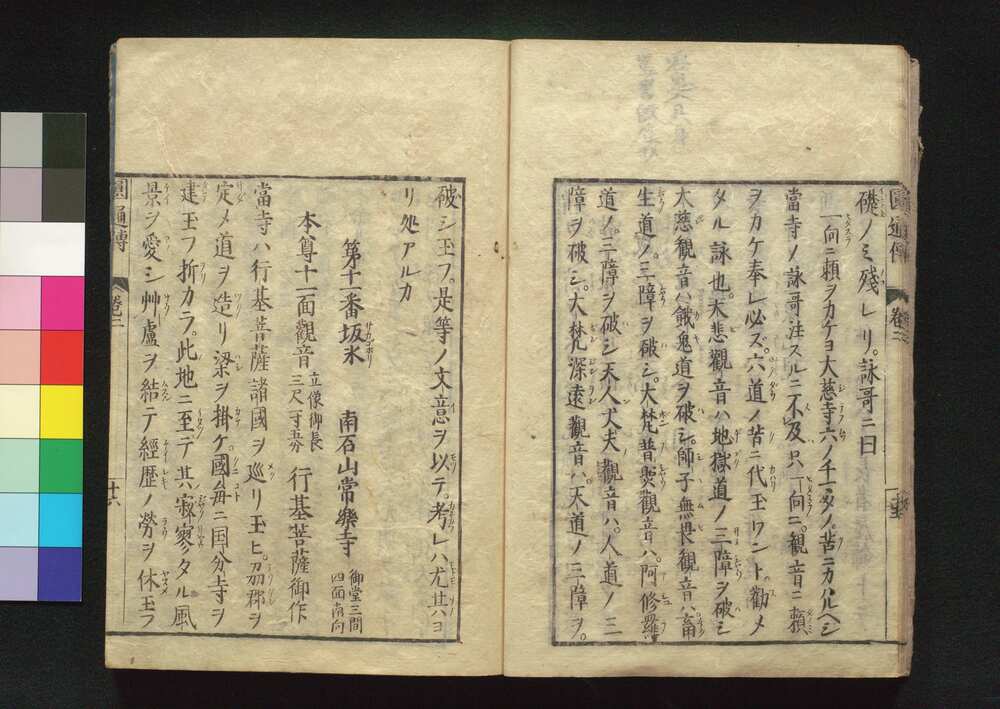 圓通傳 卷三 十五
礎ノミ殘レリ。詠哥ニ曰
一向ニ頼ヲカケヨ大慈寺六ノチマタノ苦ニカハルヘシ
當寺ノ詠哥注スルニ不及只一向ニ觀音ニ頼
ヲカケ奉レ必ズ六道ノ苦ニ代玉ワント勸メ
タル詠也大悲觀音ハ地獄道ノ三障ヲ破シ
大慈觀音ハ餓鬼道ヲ破シ師子無畏觀音ハ畜
生道ノ三障ヲ破シ大梵普熒觀音ハ阿修羅
道ノ三障ヲ破シ天人丈夫觀音ハ人道ノ三
障ヲ破シ大梵深遠觀音ハ天道ノ三障ヲ
破シ玉フ是等ノ文意ヲ以テ考レハ尤其ハヨ
リ処アルカ
第十一番坂氷 南石山常樂寺 御堂三間四面南向
本尊十一面觀音 立像御長三尺一寸五分 行基菩薩御作
當寺ハ行基菩薩諸國ヲ巡リ玉ヒ刕郡ヲ
定メ道ヲ造リ梁ヲ掛ケ國毎ニ国分寺ヲ
建玉フ折カラ此地ニ至テ其寂寥タル風
景ヲ愛シ艸盧ヲ結テ經歴ノ勞ヲ休玉フ
圓通傳 卷三 十六